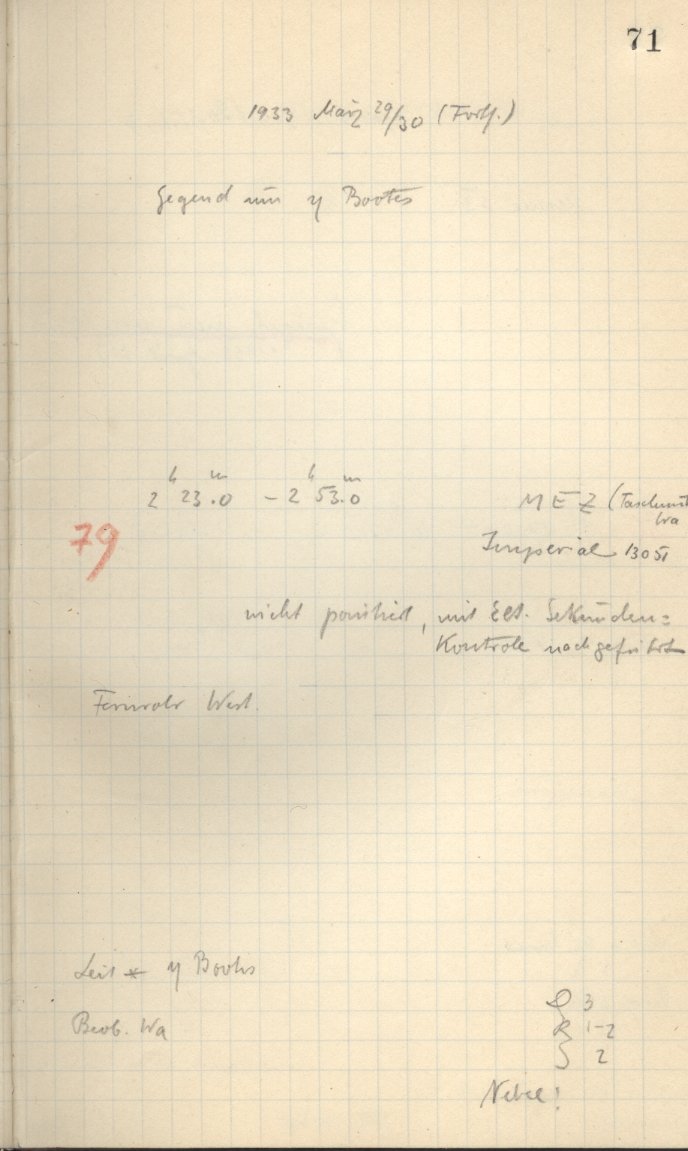 71
1933 März 29/30 (Forts.)
Gegend um η Bootes
2 h 23.0 m – 2 h 53.0 m MEZ (Taschenuhr
Wa
79
Imperial 13051
nicht pointiert, mit elt. Sekunden=
Kontrole nachgeführt
Fernrohr West.
Leit * η Bootis
3
Beob. Wa R 1–2
2
Nebel!